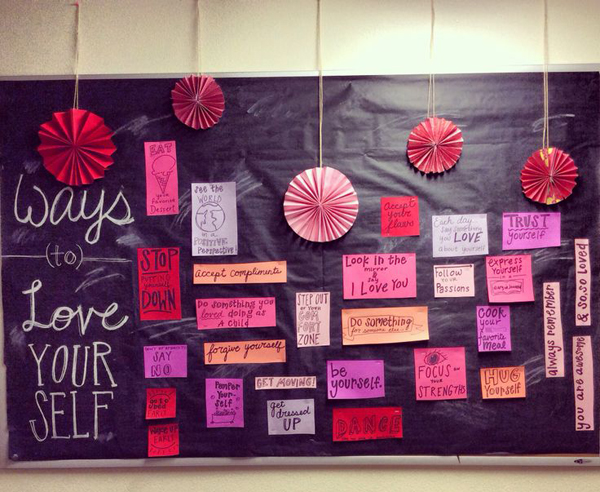 Ways
(to)
Love
YOUR
SELF
EAT
your
favorite
Dessert
See the
WORLD
in a
POSITIVE
Perspective!
accept
your
flaws
Each day
say something
you LOVE
about yourself
TRUST
yourself
STOP
putting
yourself
DOWN
accept compliments
Look in the
mirror
& say
I Love You
Follow
your
Passions
express
Yourself
Do something you
loved doing as
a child
STEP OUT
OF YOUR
COM
FORT
ZONE
Do something
for someone else
COOK
your
favorite
meal
always remember
you are awesome
& so, so loved
forgive yourself
SAY
NO
Pamper
Your-
self
GET MOVING!
get
dressed
UP
be
yourself.
FOCUS
on your
STRENGTHS
HUG
Yourself
DANCE
go to bed
EARLY
WAKE UP
EARLY